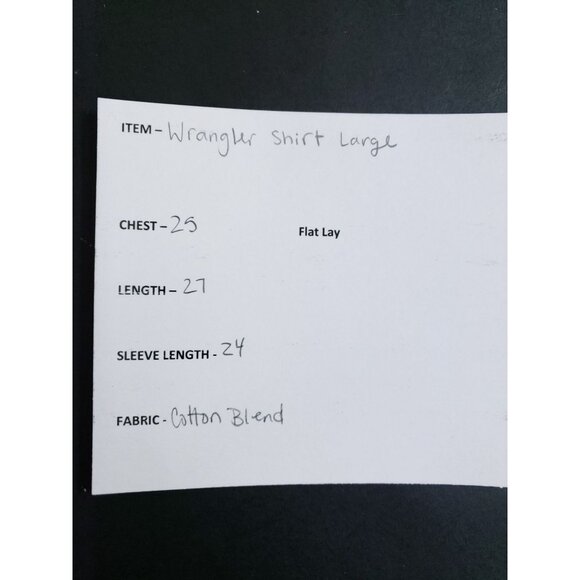 ITEM – Wrangler Shirt Large
CHEST – 25 Flat Lay
LENGTH – 27
SLEEVE LENGTH - 24
FABRIC - Cotton Blend